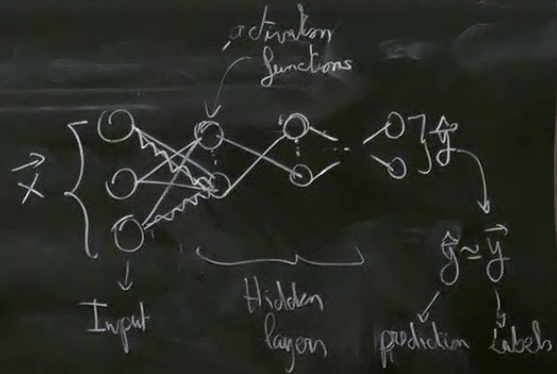 activation
functions
x⃗
ŷ
ŷ ~ y⃗
Input
Hidden
layers
prediction
Labels